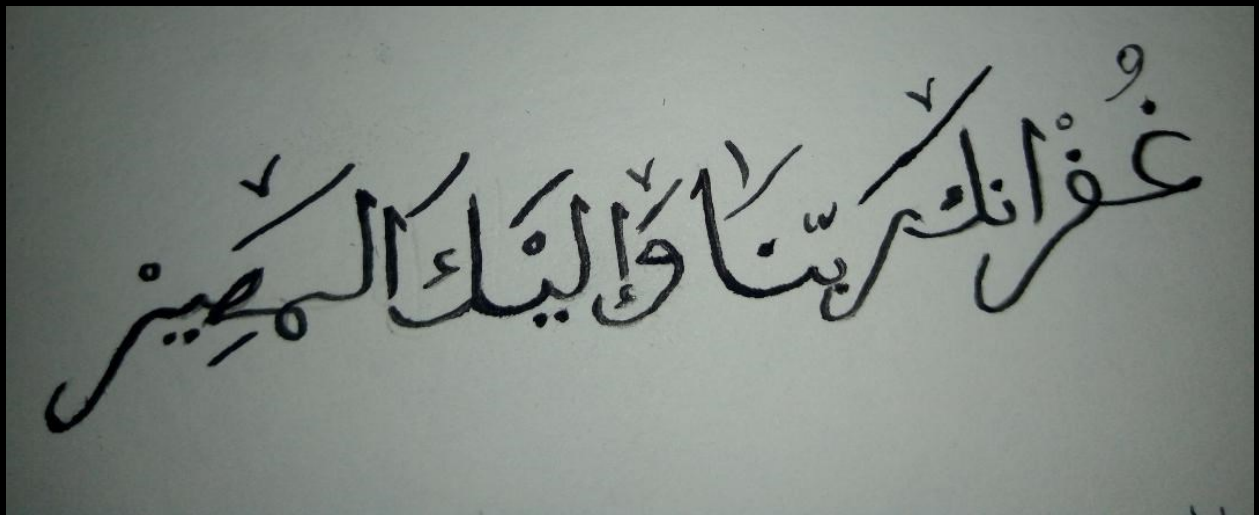 غُفْرانَك رَبّنَا وَإِليْكَ المَصِيرْ